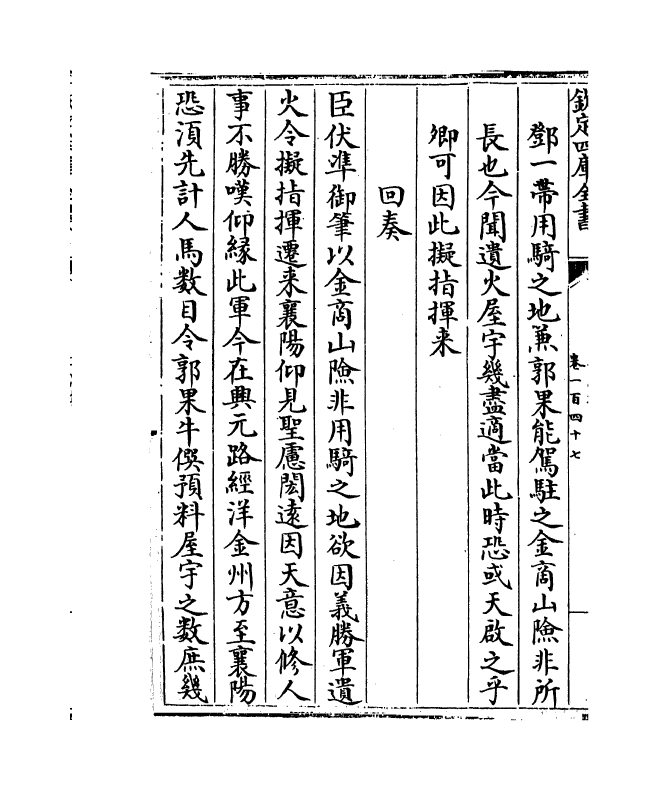 欽定四庫全書
卷一百四十七
鄧一帶用騎之地兼郭果能駕駐之金商山險非所
長也今聞遺火屋宇幾盡適當此時恐或天啟之乎
卿可因此擬指揮来
回奏
臣伏準御筆以金商山險非用騎之地欲因義勝軍遺
火令擬指揮遷来襄陽仰見聖慮閎遠因天意以修人
事不勝嘆仰緣此軍今在興元路經洋金州方至襄陽
恐湏先計人馬數目令郭果牛僎預料屋宇之數庶幾